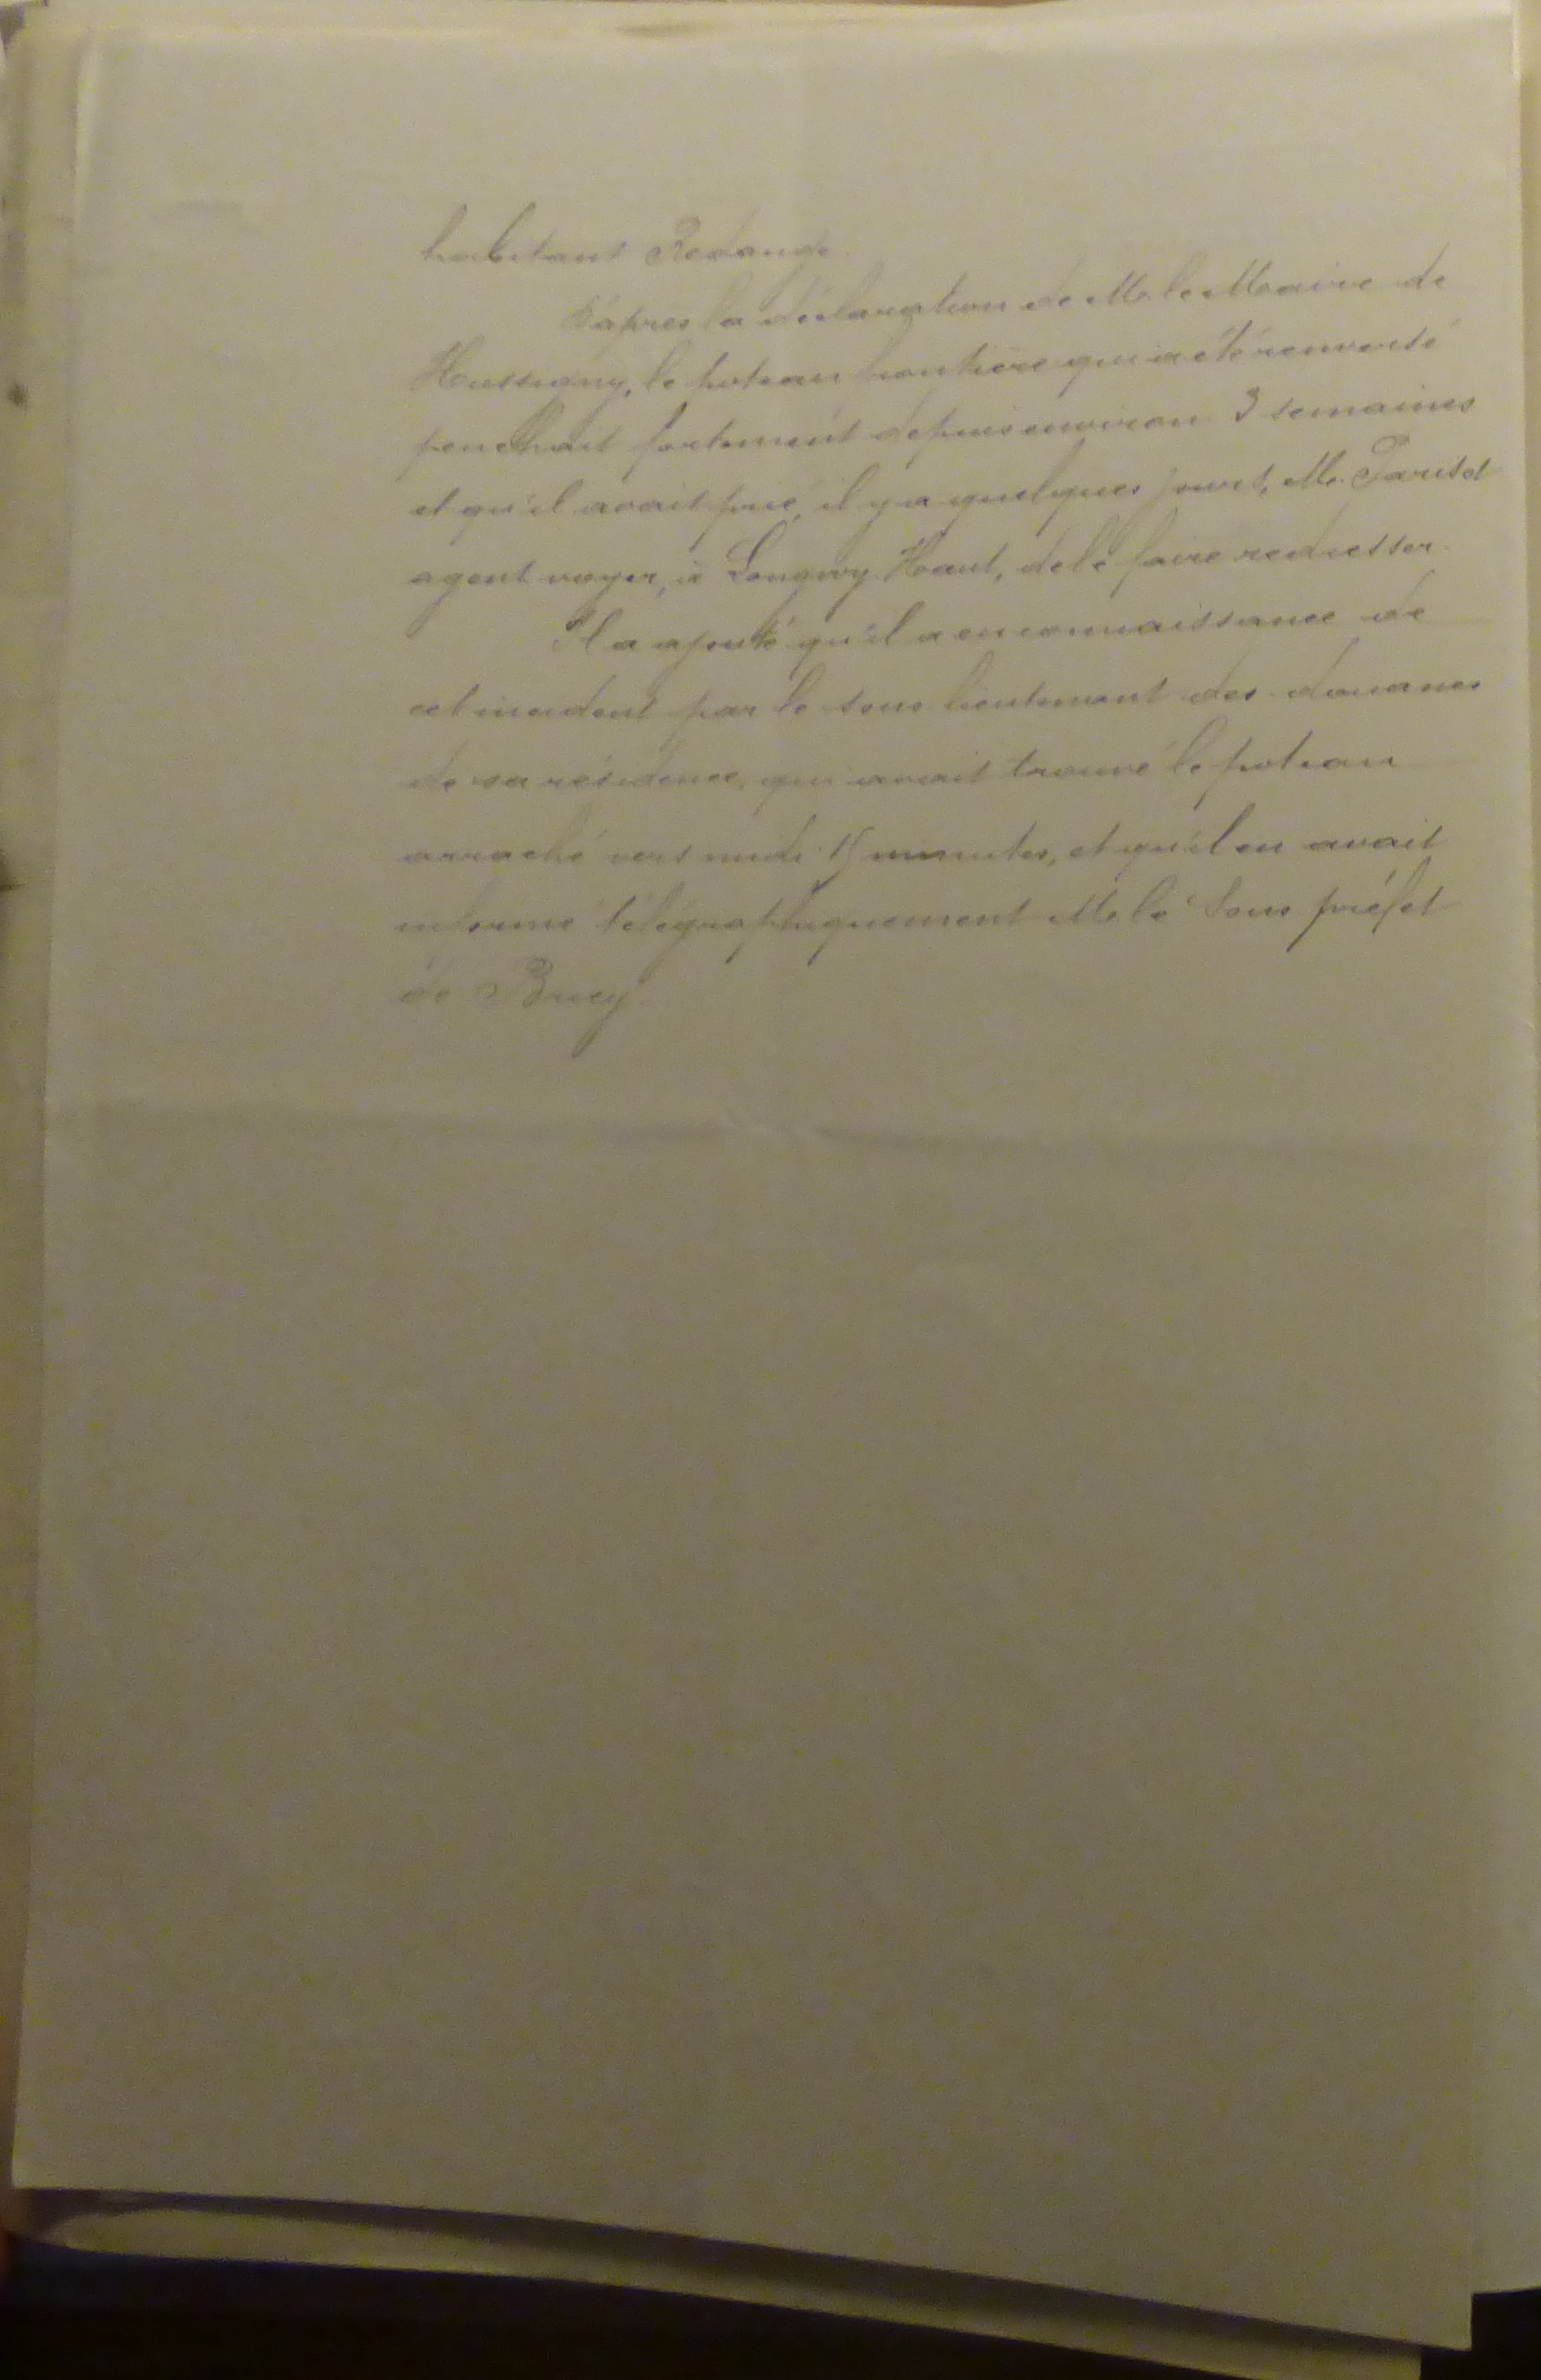 habitant Redange.
D'après la déclaration de M. le Maire de
Hussigny, le poteau frontière qui a été renversé
penchait fortement depuis environ 3 semaines
et qu'il avait prié, il y a quelques jours, M. Pariset
agent voyer, à Longwy Haut, de le faire redresser.
Il a ajouté qu'il a eu connaissance de
cet incident par le sous lieutenant des douanes
de sa résidence, qui avait trouvé le poteau
arraché vers midi 15 minutes, et qu'il en avait
informé télégraphiquement M. le Sous préfet
de Briey.